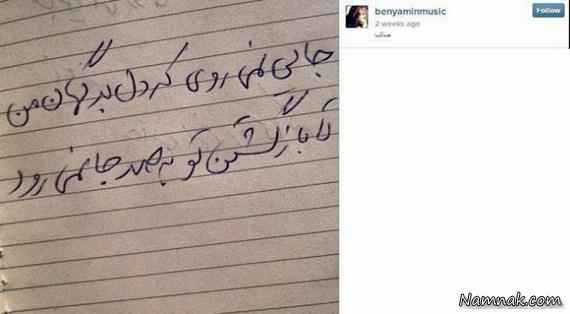 جایی نمی روی که دل بدگمان من
تا بازگشتن تو به صد جا نمی رود
benyaminmusic
Follow
2 weeks ago
Namnak.com